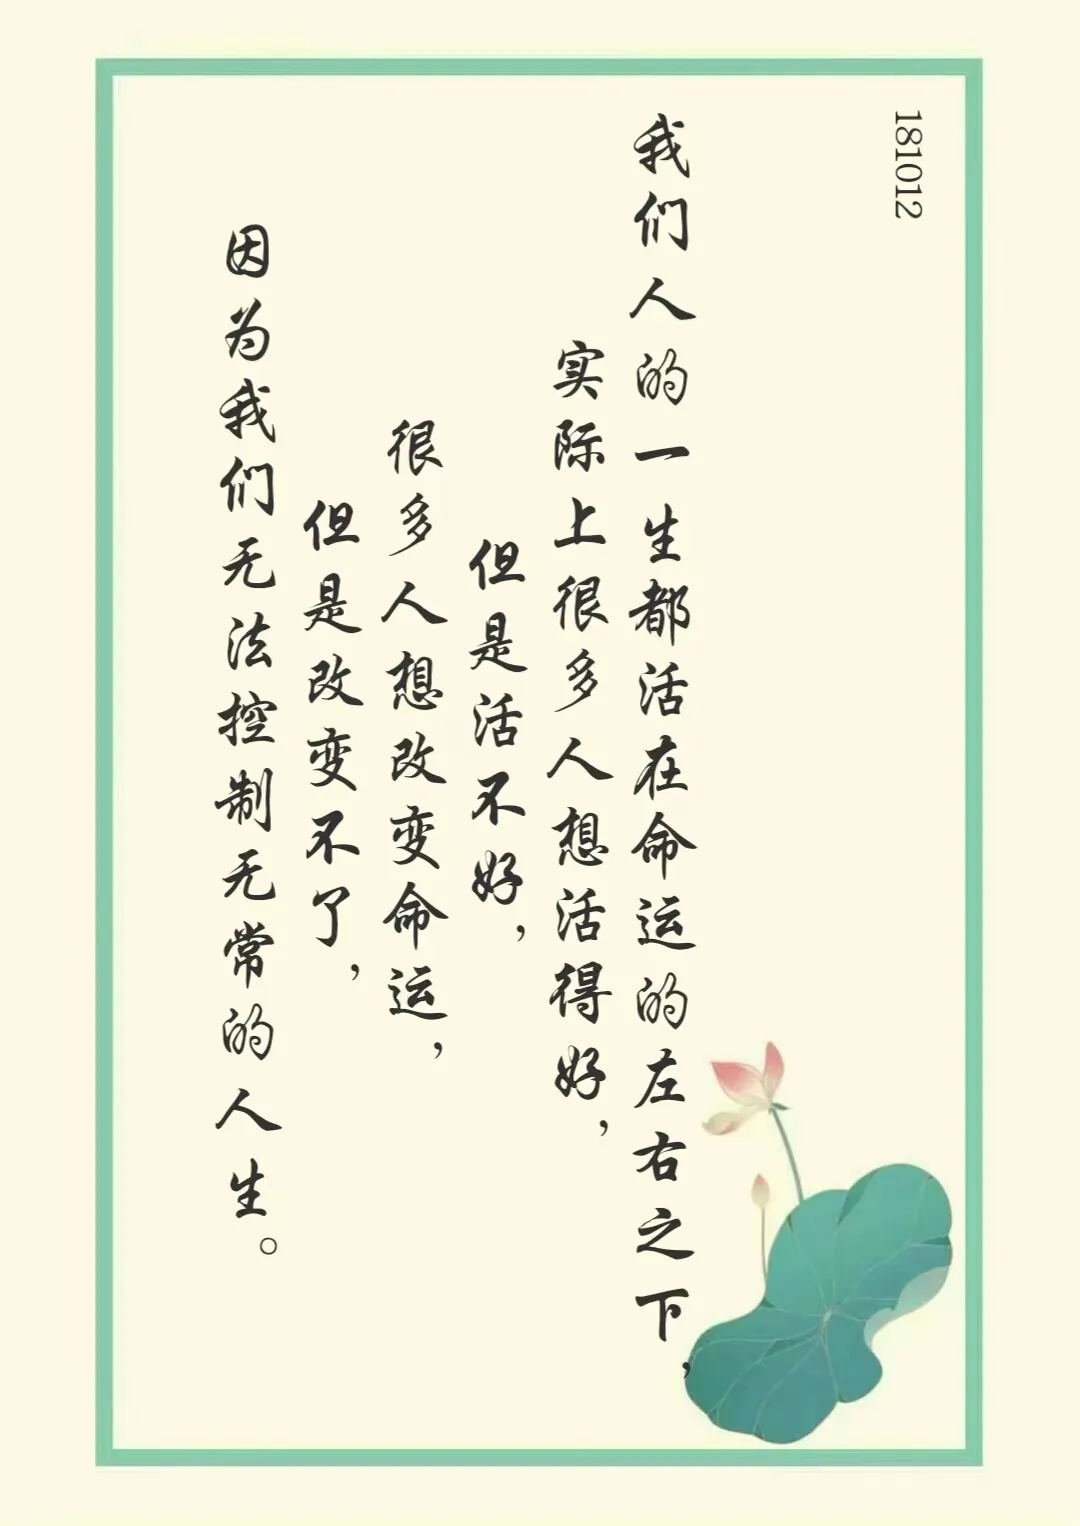 181012
我们人的一生都活在命运的左右之下，
实际上很多人想活得好，
但是活不好，
很多人想改变命运，
但是改变不了，
因为我们无法控制无常的人生。